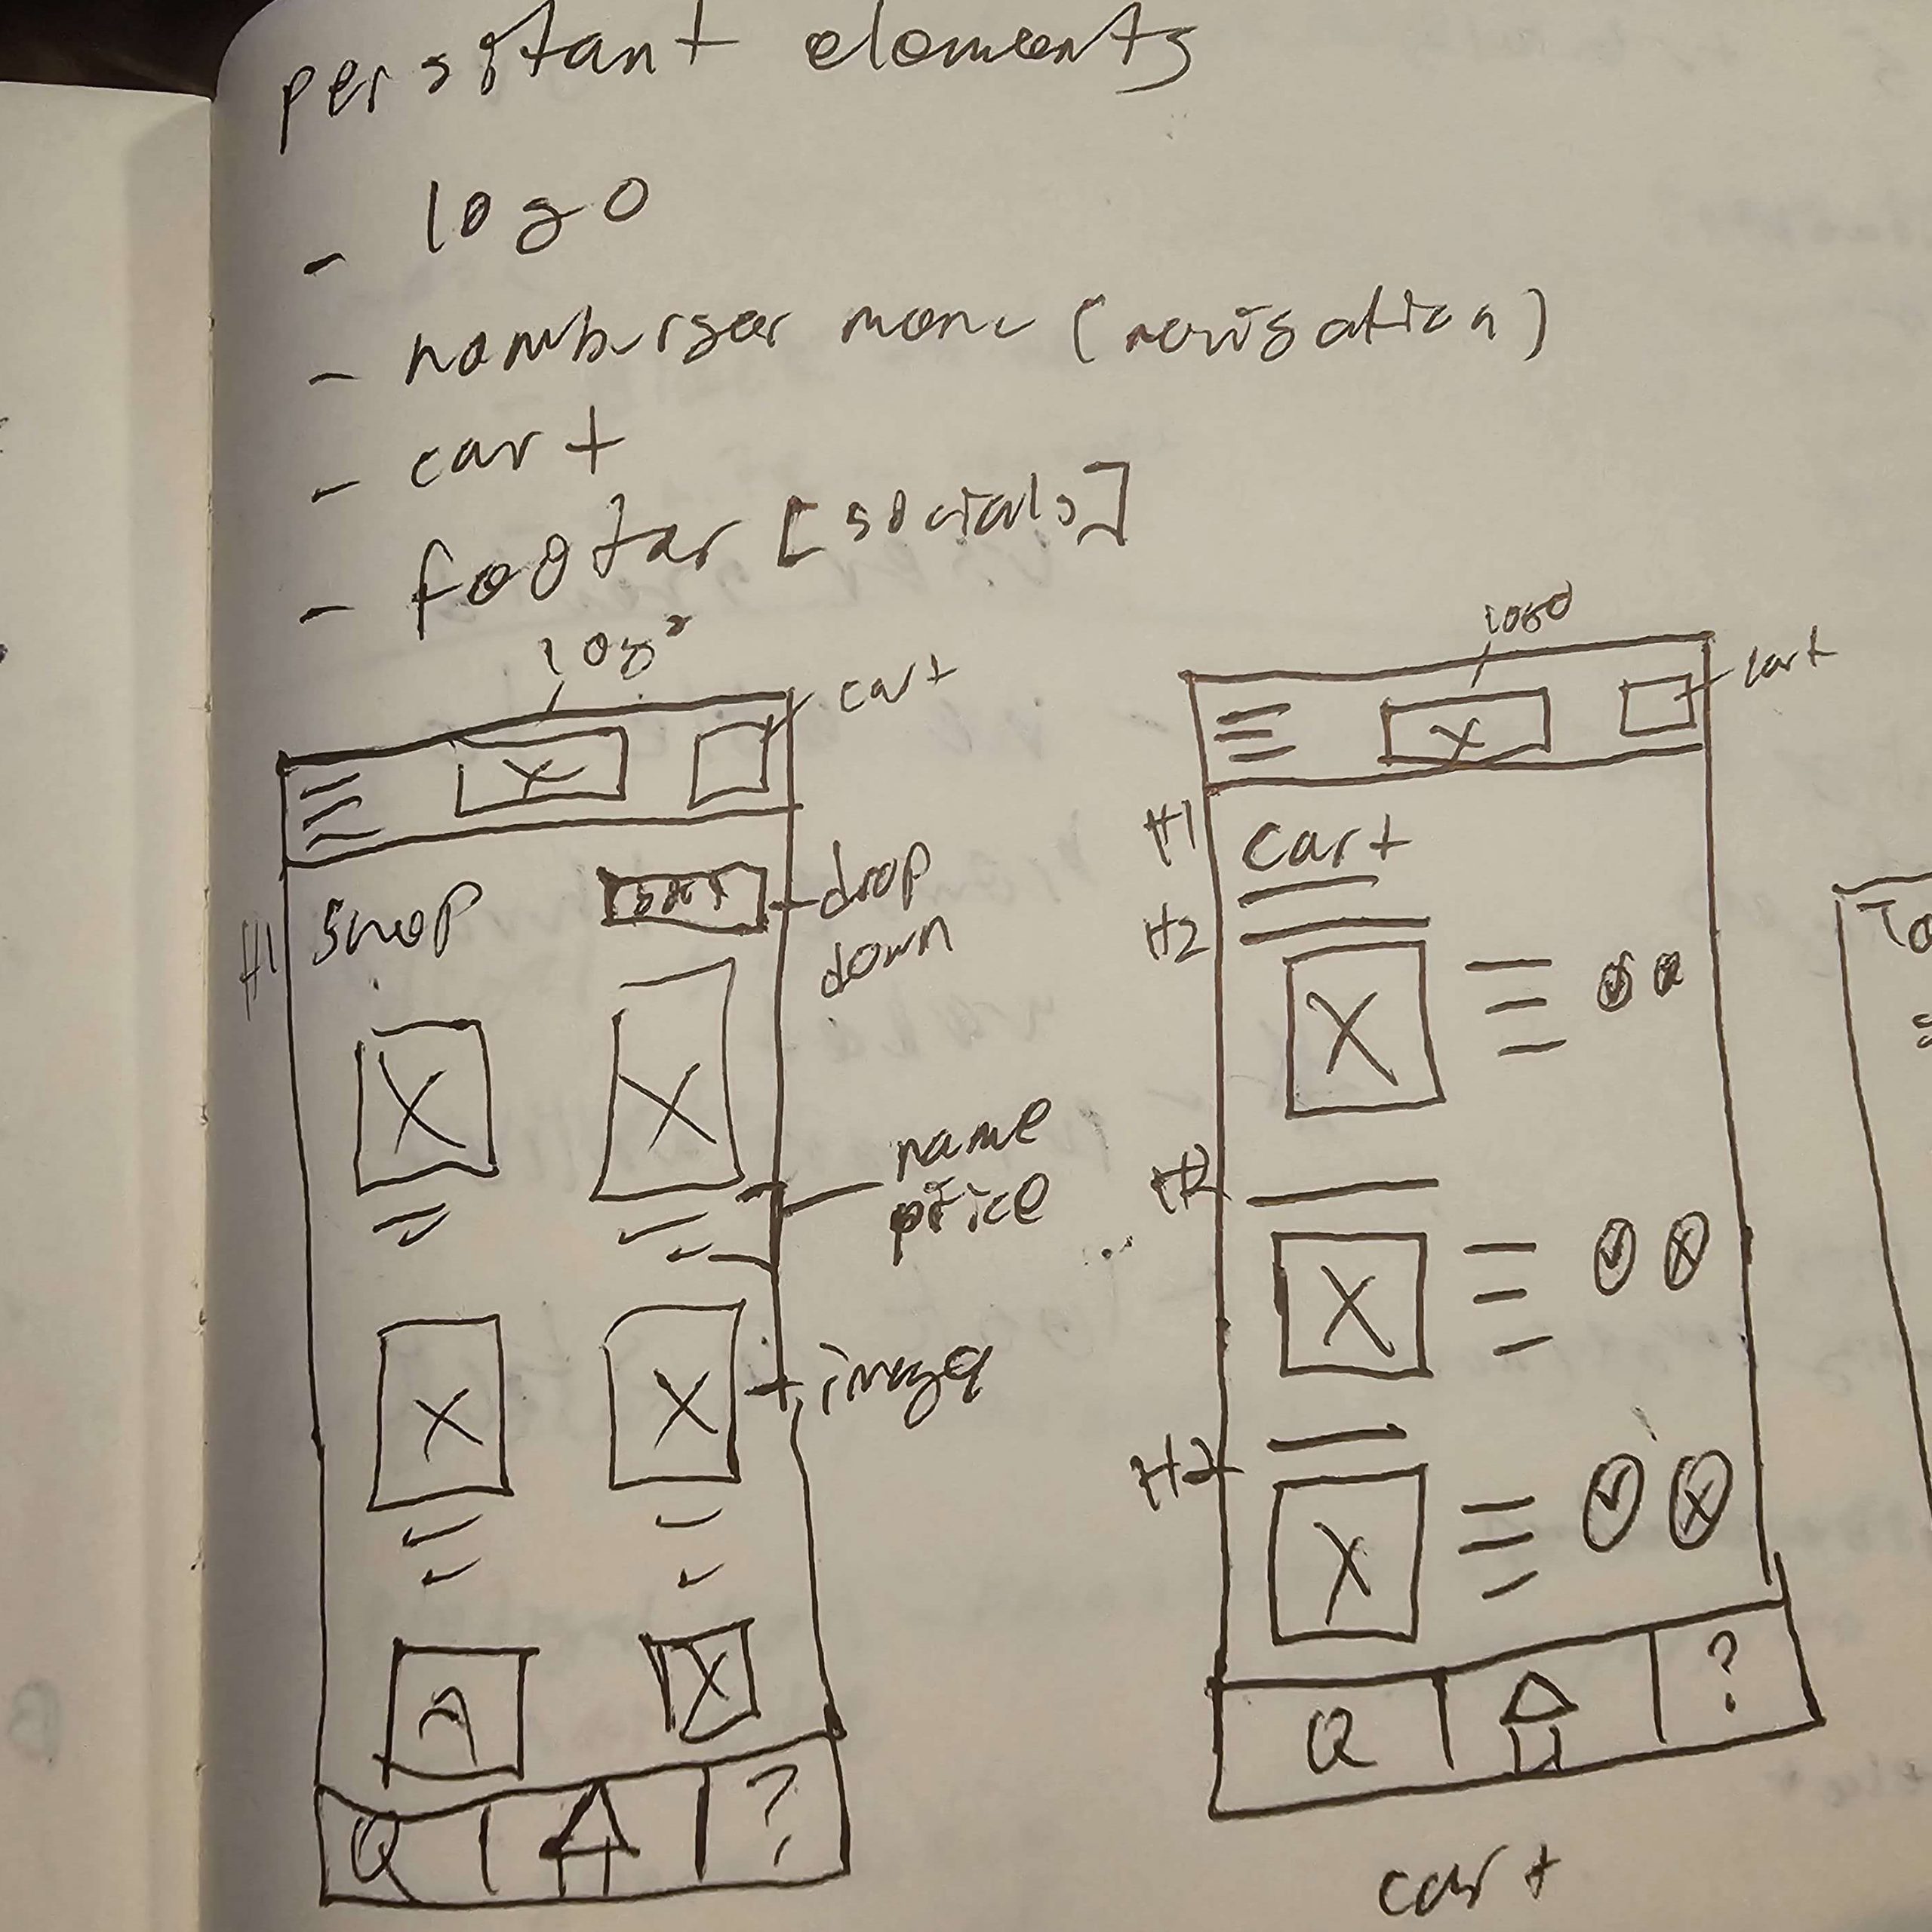 persistant elements
- logo
- hamburger menu (navigation)
- cart
- footer [socials]
logo
cart
H1 shop
drop
down
name
price
image
Q ?
logo
cart
H1 cart
H2
H2
H2
Q ?
cart